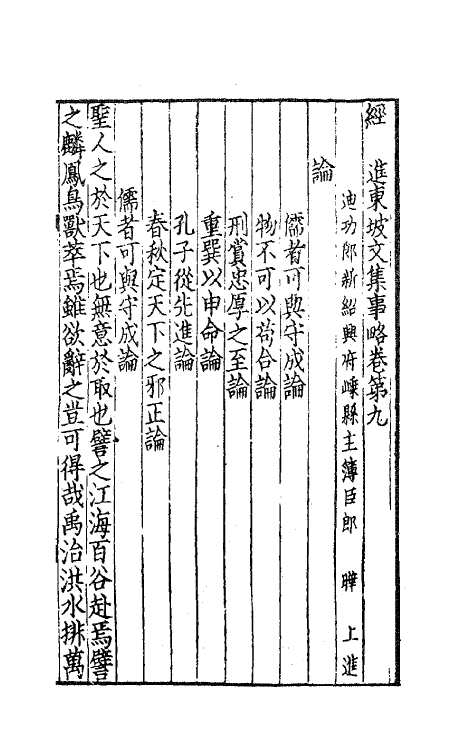 經 進東坡文集事略卷第九
迪功郎新紹興府嵊縣主簿臣郎 曄 上進
論
儒者可與守成論
物不可以苟合論
刑賞忠厚之至論
重巽以申命論
孔子從先進論
春秋定天下之邪正論
儒者可與守成論
聖人之於天下也無意於取也譬之江海百谷赴焉譬
之麟鳳鳥獸萃焉雖欲辭之豈可得哉禹治洪水排萬